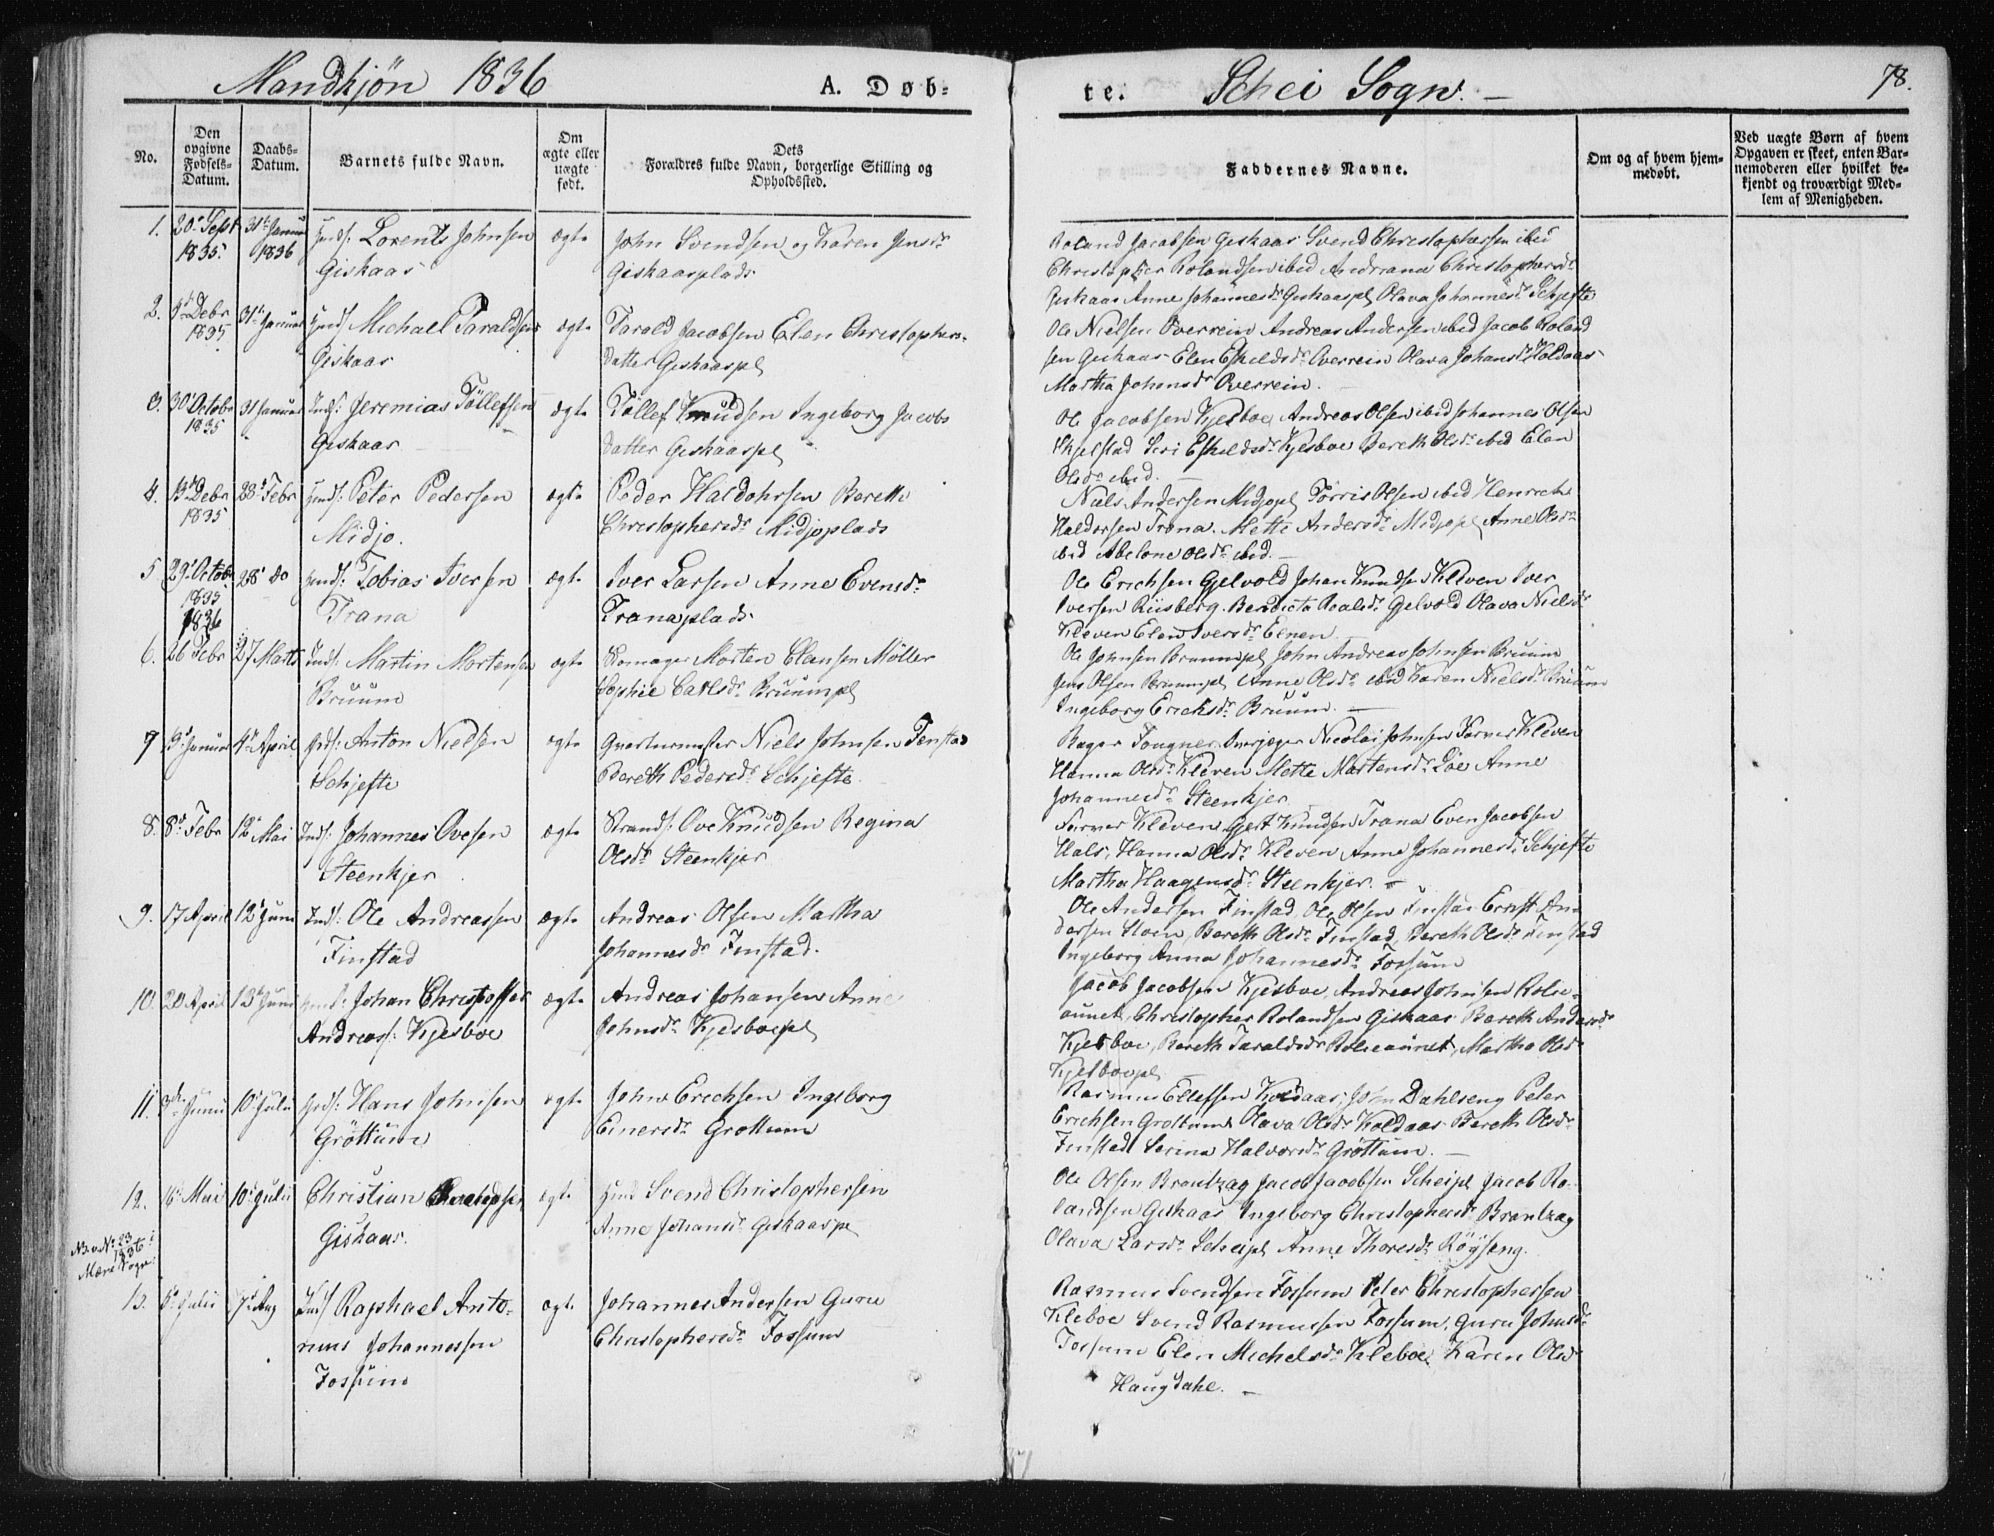 Mandkjön 1836
A. Døb-
te.
Schei Sogn. –
78.
No.
Den opgivne Fødsels-Datum.
Daabs-Datum.
Barnets fulde Navn.
Om ægte eller uægte født.
Dets Forældres fulde Navn, borgerlige Stilling og Opholdssted.
Faddernes Navne.
Om og af hvem hjem-medøbt.
Ved uægte Børn af hvem Opgaven er skeet, enten Bar-nemoderen eller hvilket be-kjendt og troværdigt Med-lem af Menigheden.
1. 20de Sept 31te Januar Lorents Johnsen ægte John Svendsen og Karen Jensdr
1835. 1836 Giskaas Giskaasplads
Roland Jacobsen Giskaas Svend Christophersen ibid
Christopher Rolandsen ibid Andriana Christophersdr
Giskaas Anne Johannesdr Giskaaspl Olava Johannesdr Schjefte
2. 9de Debr 31te Januar Michael Taraldsen ægte Tarald Jacobsen Elen Christophers-
1835 Giskaas datter Giskaaspl
Ole Nielsen Overrein Andreas Andersen ibid Jacob Roland
sen Giskaas Elen Eskeldsdr Overrein Olava Johansdr Koldaas
Martha Johansdr Overrein. –
3. 30 Octobr 31 Januar Jeremias Töllefsen ægte Töllef Knudsen Ingeborg Jacobs
1835 Giskaas datter Giskaaspl
Ole Jacobsen Kjesboe Andreas Olsen ibid Johannes Olsen
Skjelstad Siri Eskeldsdr Kjesboe Bereth Olsdr ibid Elen
Olsdr ibid. –
4. 13de Debr 28de Febr Peter Pedersen ægte Peder Haldohrsen Berethe
1835 Midjo. Christophersdr Midjoplads
Niels Andersen Midjopl Törris Olsen ibid Henrich
Haldorsen Trana. Mette Andersdr Midjopl Anne Olsdr
ibid Abelone Olsdr ibid. –
5 29de Octob 28de do Tobias Iversen ægte Iver Larsen Anne Evensdr
1835 Trana Tranaplads
Ole Erichsen Gjelvold Johan Knudsen Kleven Iver
Iversen Riisberg. Benedicta Roalsdr Gjelvold Olava Nielsdr
Kleven Elen Iversdr Elnen
1836
6. 26 Febr 27 Marts Martin Mortensen ægte Skomager Morten Clausen Möller
Bruum Sophie Carlsdr Bruumpl
Ole Johnsen Bruumpl John Andreas Johnsen Bruum
Jens Olsen Bruumpl Anne Olsdr ibid Karen Nielsdr Bruum
Ingeborg Erichsdr Bruum. –
7 9de Januar 4de April Anton Nielsen ægte Quartermester Niels Johnsen Finstad
Schjefte Bereth Pedersdr Schjefte
Bager Fougner Overjæger Nicolai Johnsen Farver Kleven
Hanna Olsdr Kleven Mette Martensdr Löe Anne
Johannesdr Steenkjer
8. 8de Febr 12te Mai Johannes Ovesen ægte Strands: Ove Knudsen Regina
Steenkjer Olsdr Steenkjer
Farver Kleven Gert Knudsen Trana Even Jacobsen
Hals, Hanna Olsdr Kleven Anne Johannesdr Schjefte
Martha Haagensdr Steenkjer. –
9. 17 April 12te Juni Ole Andreassen ægte Andreas Olsen Martha
Finstad Johannesdr Finstad.
Ole Andersen Finstad, Ole Olsen Finstad Ernst An
dersen Hoen, Bereth Olsdr Finstad, Bereth Olsdr Finstad
Ingeborg Anna Johannesdr Fossum
10. 20 April 12te Juni Johan Christoffer ægte Andreas Johansen Anne
Andreass: Kjesboe Johnsdr Kjesboepl
Jacob Jacobsen Kjesboe, Andreas Johnsen Rolie-
aunet Christopher Rolandsen Giskaas Bereth Andersdr
Kjesboe, Bereth Taraldsdr Rolieaunet, Martha Olsdr
Kjesboepl
11. 3die Juni 10de Julii Hans Johnsen ægte John Erichsen Ingeborg
Gröttum Einersdr Grottum
Rasmus Ellefsen Koldaas, John Dahlseng Peter
Erichsen Grottum Olava Olsdr Koldaas Bereth Olsdr
Finstad Serina Halvorsdr Gröttum. –
12. 16 Mai 10de Julii Christian Svendsen ægte Svend Christophersen
Giskaas. Anne Johansdr Giskaaspl
Ole Olsen Brantzag Jacob Jacobsen Scheipl Jacob Ro-
landsen Giskaas Ingeborg Christophersdr Brantzag
Olava Larsdr Scheipl Anne Thoresdr Röyseng.
No 23
1836 i
Mære Sogn
13. 5te Julii 7de Aug Raphael Anto- ægte Johannes Andersen Guru
nius Johannessen Christophersdr Fossum
Fossum
Rasmus Svendsen Fossum Peter Christophersen
Kleboe Svend Rasmussen Fossum, Guru Johnsdr
Fossum Elen Michelsdr Kleboe, Karen Olsdr
Haugdahl. –